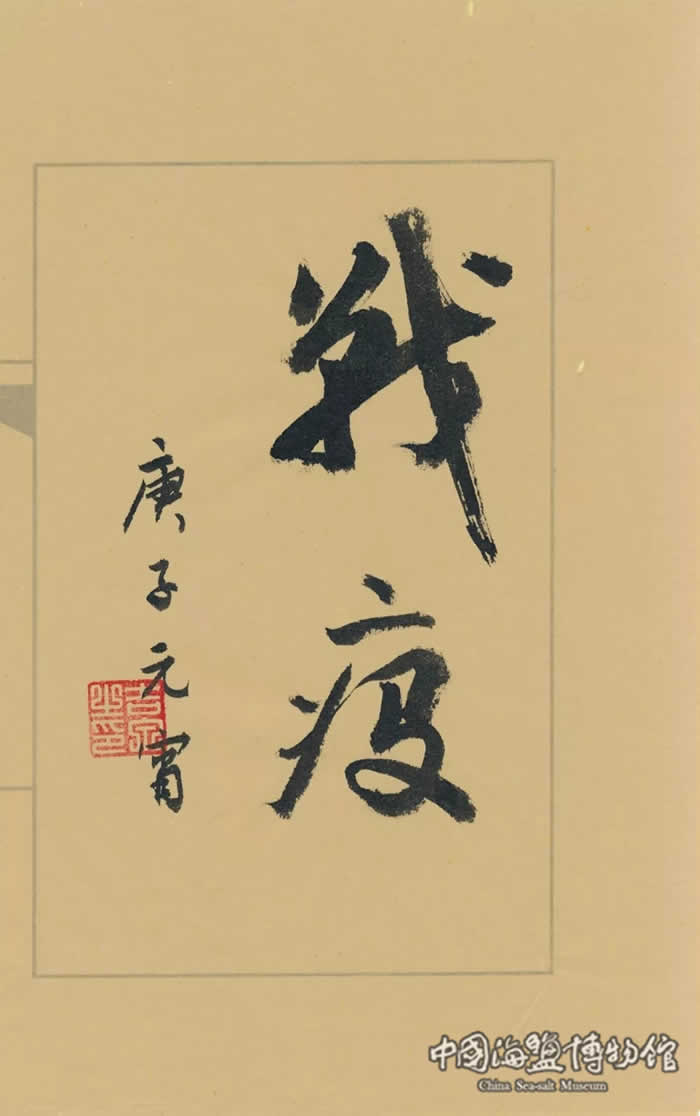 戰疫
庚子元宵
中國海鹽博物館
China Sea-salt Museum